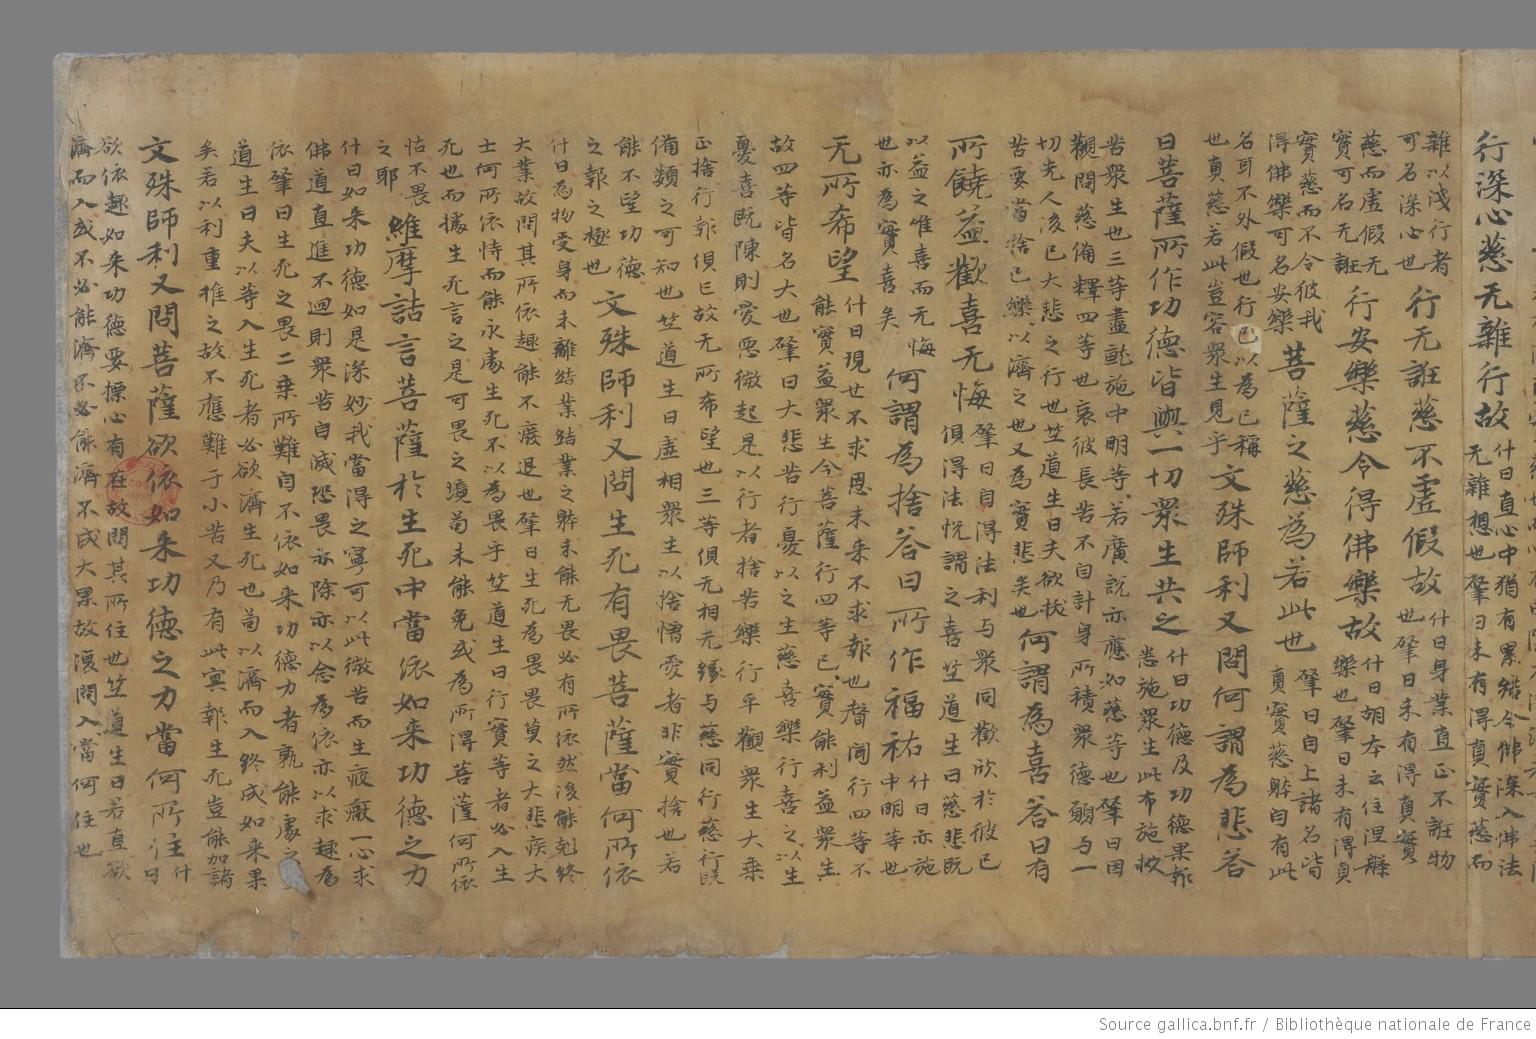 行深心慈无雜行故 什曰直心中猶有累結今佛深入佛法
无雜想也肇曰未有得真實慈而
雜以淺行者
可名深心也 行无誑慈不虛假故 什曰身業直正不誑物
也肇曰未有得真實
慈而虛假无
實可名无誑 行安樂慈令得佛樂故 什曰胡本云住涅槃
樂也肇曰未有得真
實慈而不令彼我
得佛樂可名安樂 菩薩之慈為若此也 肇曰自上諸名皆
真實慈體自有此
名耳不外假也行已以為已稱
也真慈若此豈容衆生見乎 文殊師利又問何謂為悲答
曰菩薩所作功德皆與一切衆生共之 什曰功德及功德果報
悉施衆生此布施救
苦衆生也三等盡就施中明等若廣說亦應如慈等也肇曰因
觀問慈備釋四等也哀彼長苦不自計身所積衆德願与一
切先人後已大悲之行也竺道生曰夫欲拔
苦要當捨已樂以濟之也又為實悲矣也 何謂為喜答曰有
所饒益歡喜无悔 肇曰自得法利与衆同歡欣於彼已
俱得法悅謂之喜竺道生曰慈悲既
以益之唯喜而无悔
也亦為實喜矣 何謂為捨答曰所作福祐 什曰亦施
中明等也
无所希望 什曰現世不求恩未來不求報也肇同行四等不
能實益衆生今菩薩行四等已實能利益衆生
故四等皆名大也肇曰大悲苦行憂以之生慈喜樂行喜之以生
憂喜既陳則愛惡微起是以行者捨苦樂行平觀衆生大乘
正捨行報俱亡故无所希望也三等俱无相无緣与慈同行慈行既
備類之可知也竺道生曰虛相衆生以捨憎愛者非實捨也若
能不望功德
之報之極也 文殊師利又問生死有畏菩薩當何所依
什曰為物受身而未離結業結業之體未能无畏必有所依然後能剋終
大業故問其所依趣能不癈退也肇曰生死為畏畏莫之大悲疾大
士何所依恃而能永處生死不以為畏乎竺道生曰行實等者必入生
死也而據生死言之是可畏之境苟未能免或為所得菩薩何所依
怙不畏
之耶 維摩詰言菩薩於生死中當依如来功德之力
什曰如来功德如是深妙我當得之寧可以此微苦而生疲厭一心求
佛道直進不迴則衆苦自滅恐畏亦除亦以念為依亦以求趣為
依肇曰生死之畏二乘所難自不依如来功德力者孰能處之
道生曰夫以等入生死者必欲濟生死也苟以濟而入終成如来果
矣若以利重推之故不應難于小苦又乃有此冥報生死豈能加諸
文殊師利又問菩薩欲依如来功德之力當何所住 什曰
欲依趣如来功德要標心有在故問其所住也竺道生曰若直欲
濟而入或不必能濟不必能濟不成大果故須問入當何住也
Source gallica.bnf.fr / Bibliothèque nationale de France